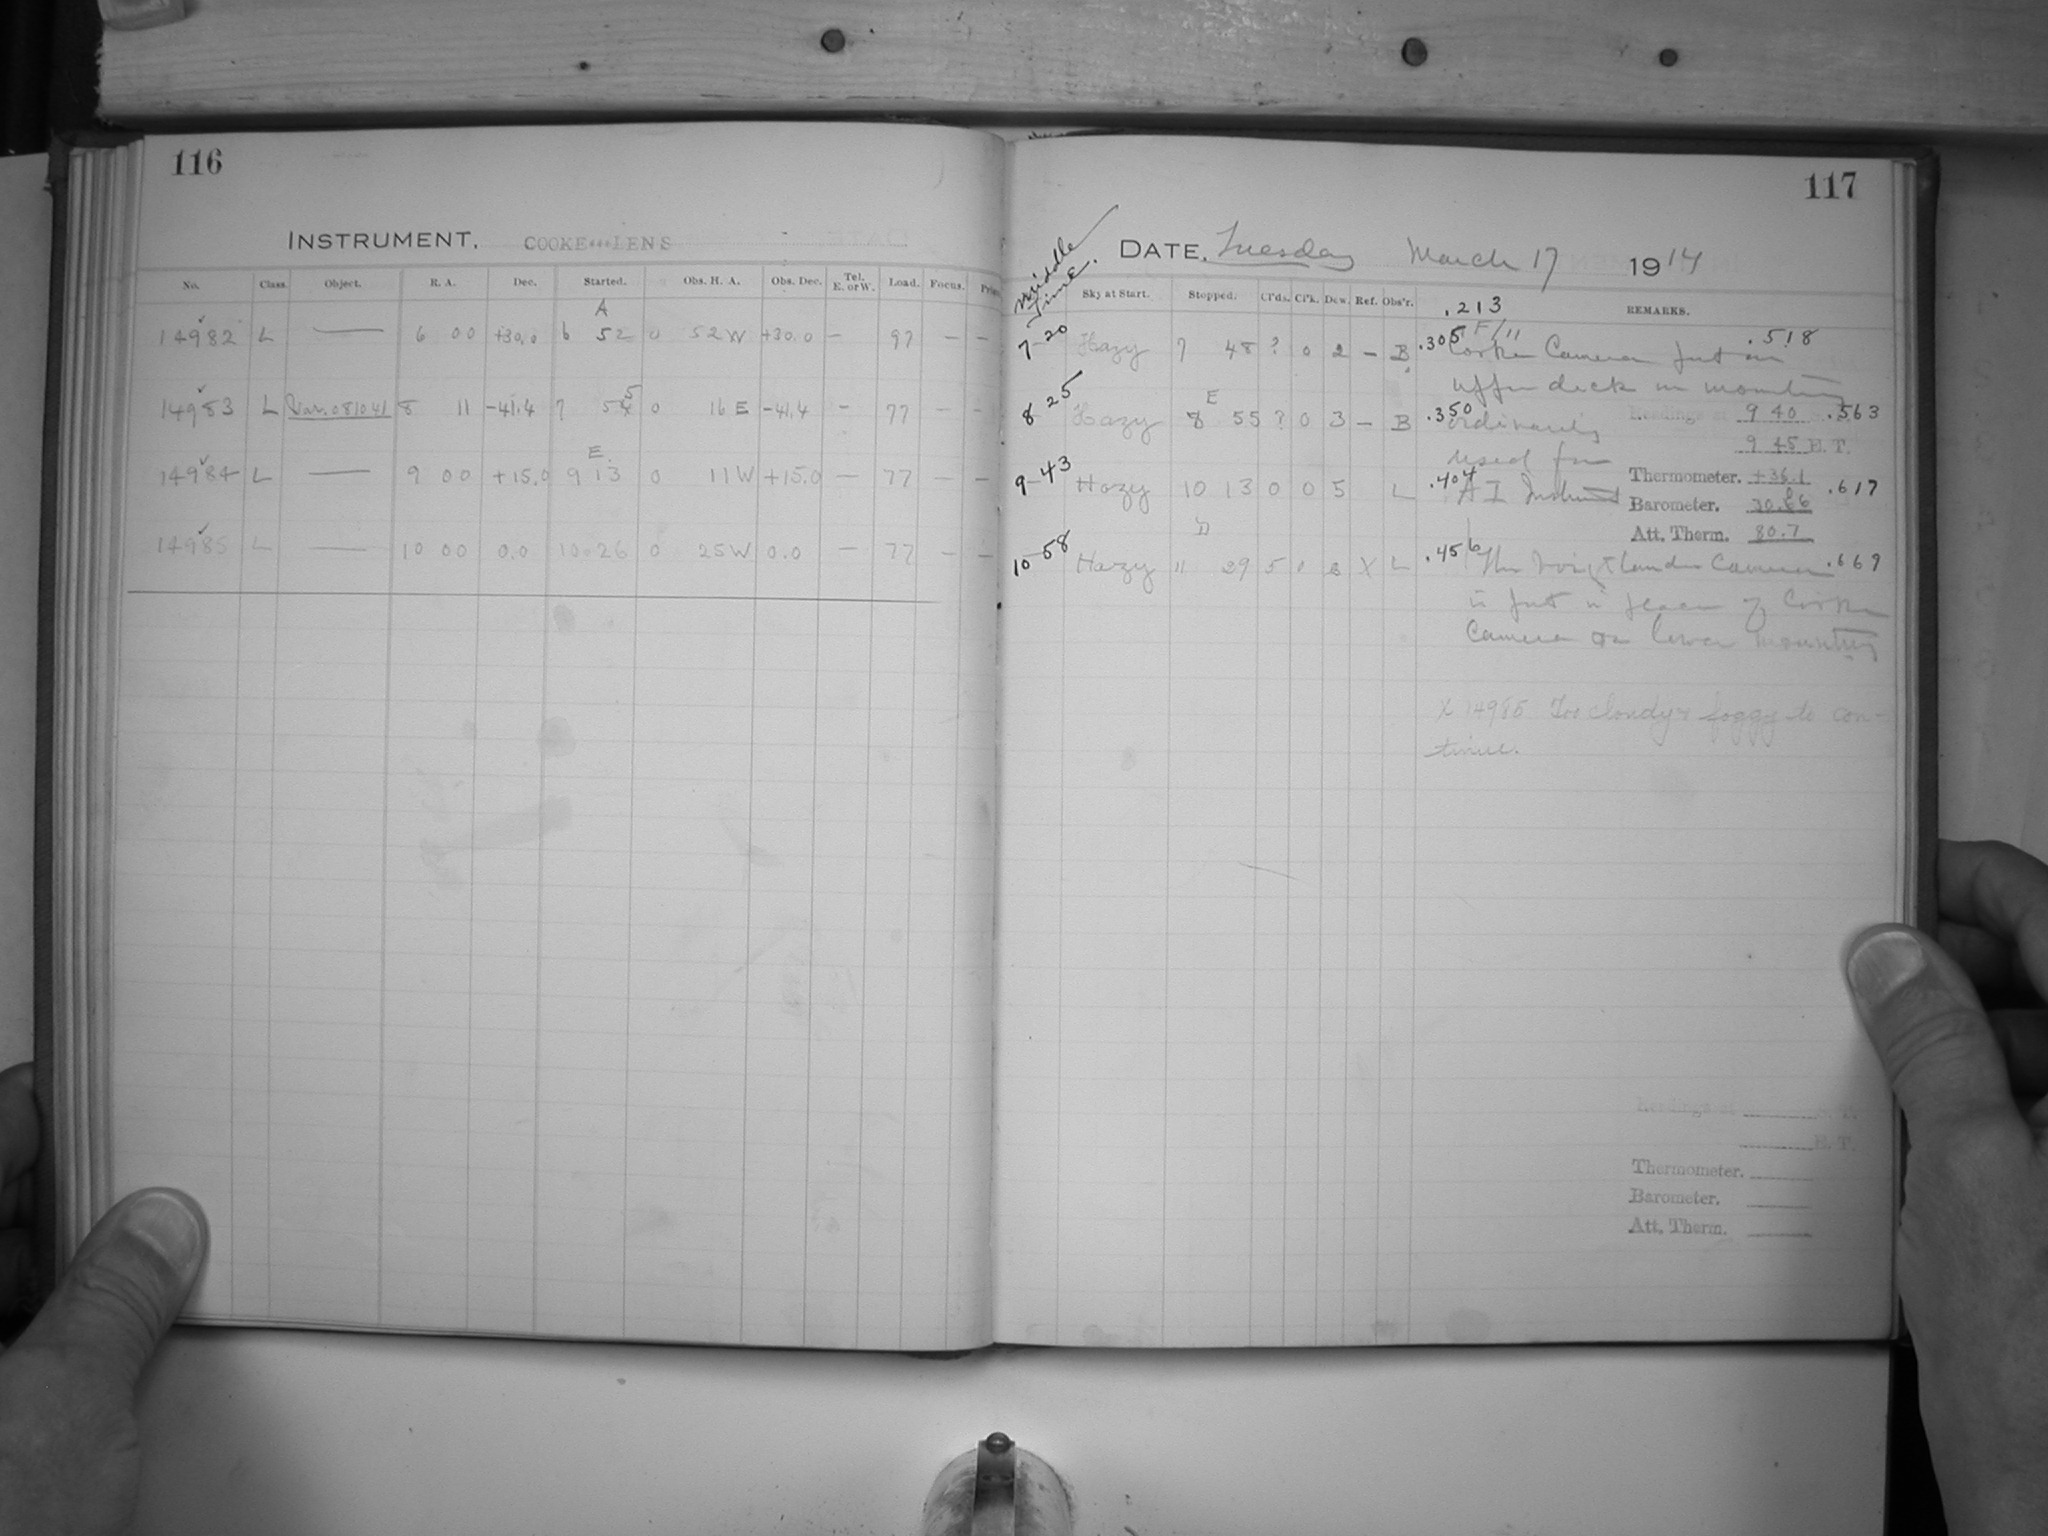 116
INSTRUMENT. COOKE LENS
No. Class. Object. R. A. Dec. Started. Obs. H. A. Obs. Dec. Tel. E. or W. Load. Focus.
A
14982 L — 6 00 +30.0 6 52 0 52 W +30.0 — 97 — —
14983 L Var. 081041 8 11 -41.4 7 55 0 16 E -41.4 — 77 — —
E.
14984 L — 9 00 +15.0 9 13 0 11 W +15.0 — 77 — —
14985 L — 10 00 0.0 10 26 0 25 W 0.0 — 77 — —
117
Middle Time.
DATE. Tuesday March 17 1914
Sky at Start. Stopped. Cl'ds. Cl'k. Dew. Ref. Obs'r. REMARKS.
.213
7-20 Hazy 7 48 ? 0 2 — B .305 F/11 .518
Cooke Camera put on
upper deck in mounting
E
8-25 Hazy 8 55 ? 0 3 — B .350 ordinarily
Readings at 9 40 .563
9 45 E. T.
used for
9-43 Hazy 10 13 0 0 5 L .404 A I Instrument
Thermometer. +36.1 .617
Barometer. 30.66
Att. Therm. 80.7
D
10-58 Hazy 11 29 5 0 2 X L .456 The Voigtlander Camera .669
is put in place of Cooke
Camera on lower mounting
X 14985 Too cloudy & foggy to con-
tinue.
Readings at
E. T.
Thermometer.
Barometer.
Att. Therm.